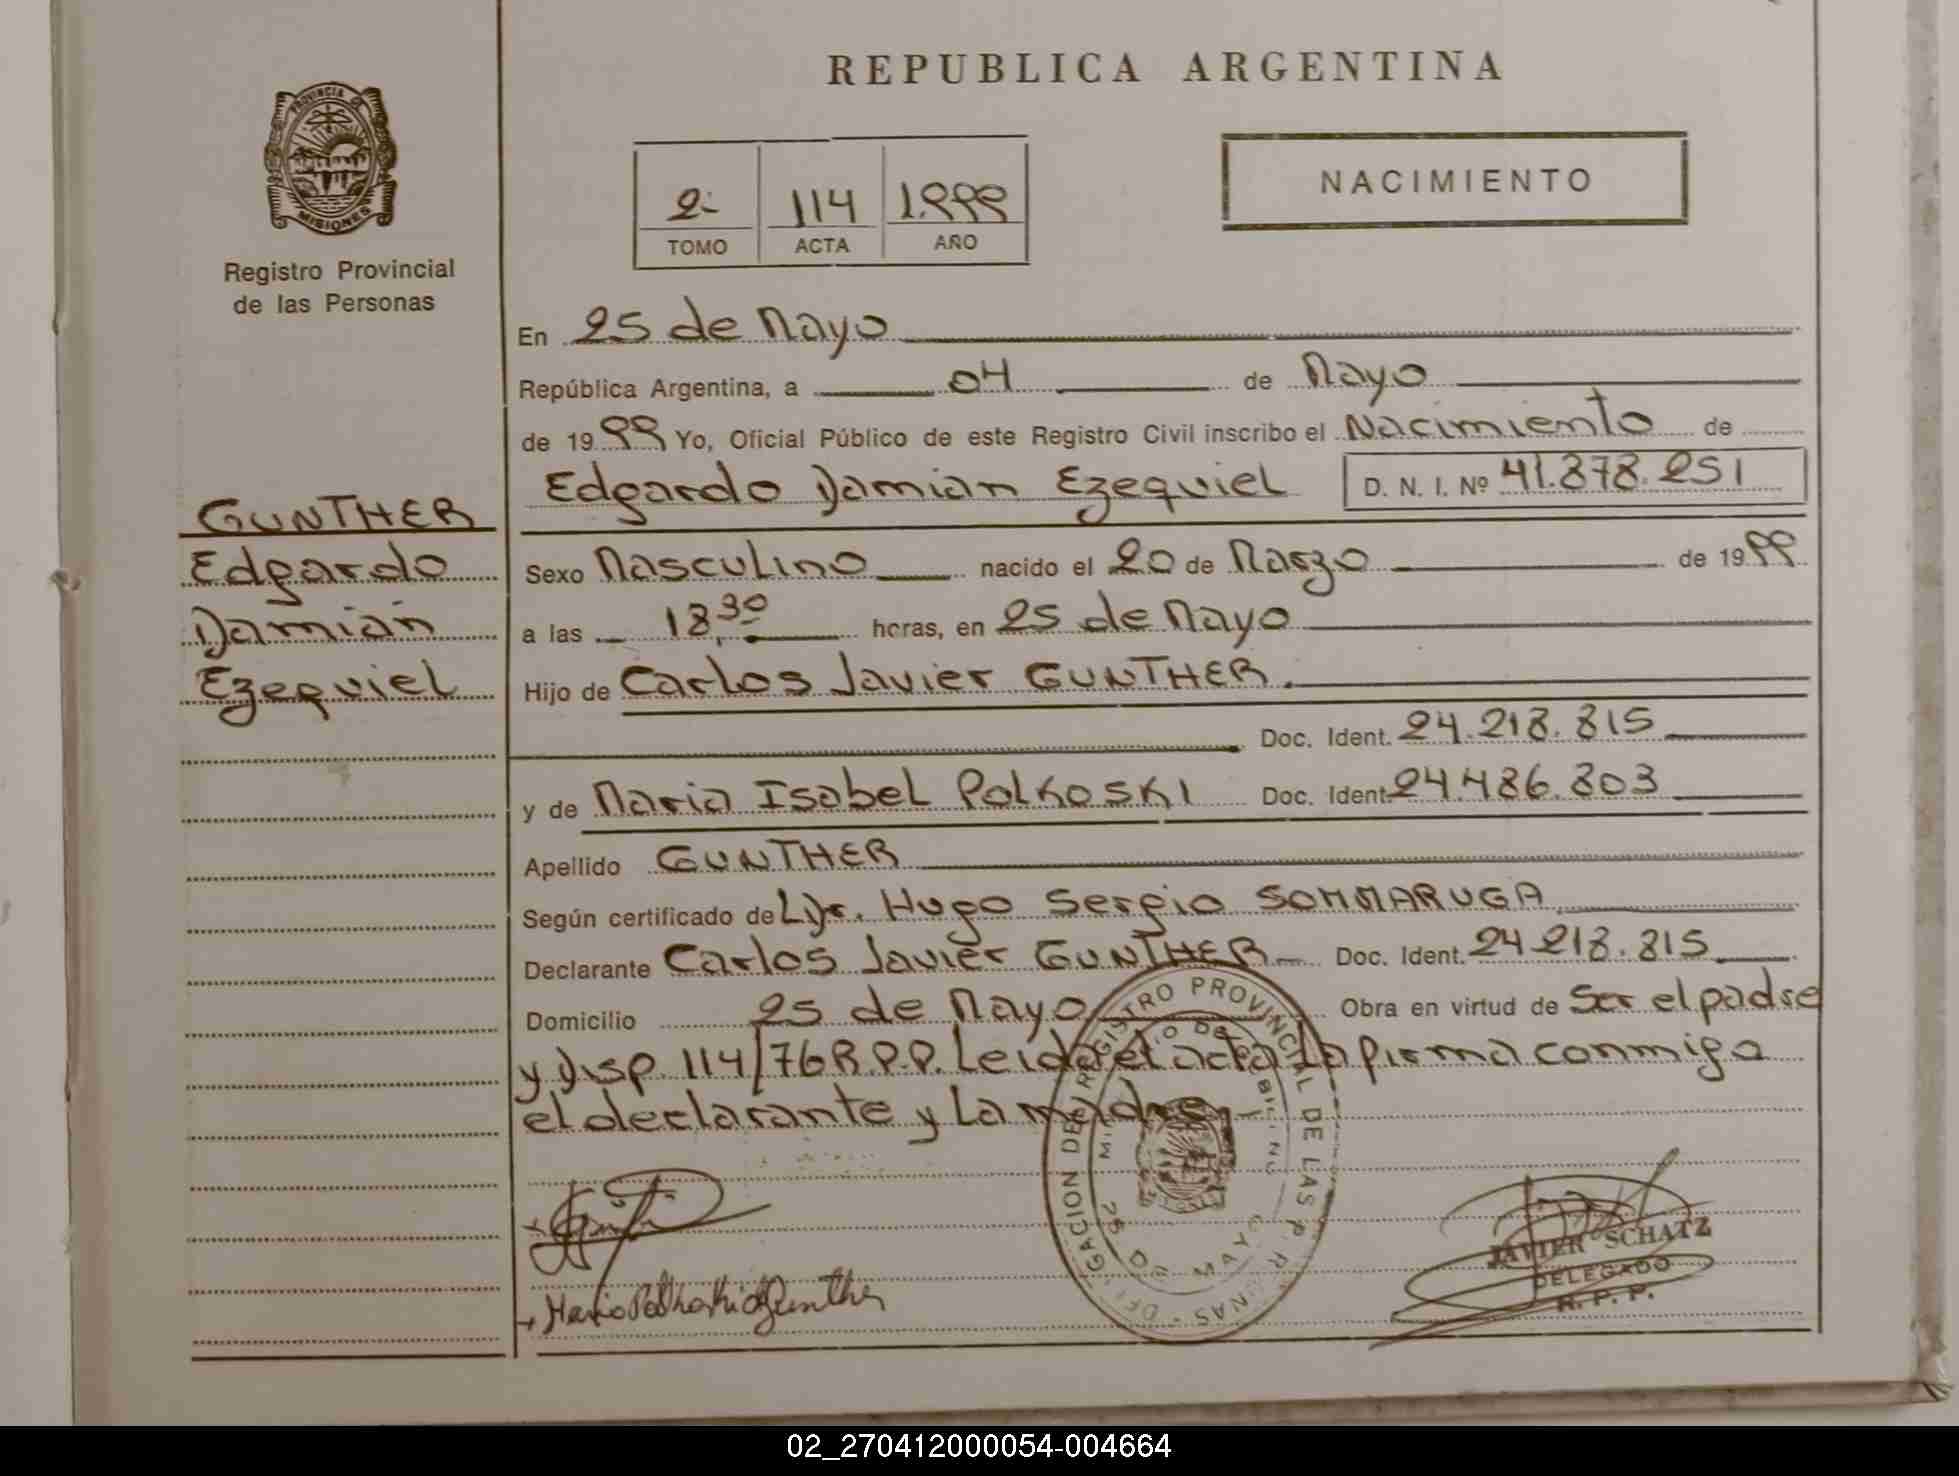 REPUBLICA ARGENTINA
PROVINCIA DE
MISIONES
Registro Provincial
de las Personas
2º 114 1.999
TOMO ACTA AÑO
NACIMIENTO
En 25 de Mayo
República Argentina, a 04 de Mayo
de 1999 Yo, Oficial Público de este Registro Civil inscribo el Nacimiento de
Edgardo Damián Ezequiel D. N. I. Nº 41.878.251
GUNTHER
Edgardo
Damián
Ezequiel
Sexo Masculino nacido el 20 de Marzo de 1999
a las 18,30 horas, en 25 de Mayo
Hijo de Carlos Javier GUNTHER.
Doc. Ident. 24.218.815
y de Maria Isabel Polkoski Doc. Ident. 24.486.803
Apellido GUNTHER
Según certificado de Dr. Hugo Sergio SOMMARUGA
Declarante Carlos Javier GUNTHER Doc. Ident. 24 218.815
Domicilio 25 de Mayo Obra en virtud de Ser el padre
y Disp. 114/76 R.P.P. Leida el acta la firma conmigo
el declarante y La madre
REGISTRO PROVINCIAL DE LAS
25 DE MAYO
JAVIER SCHATZ
DELEGADO
R. P. P.
02_270412000054-004664